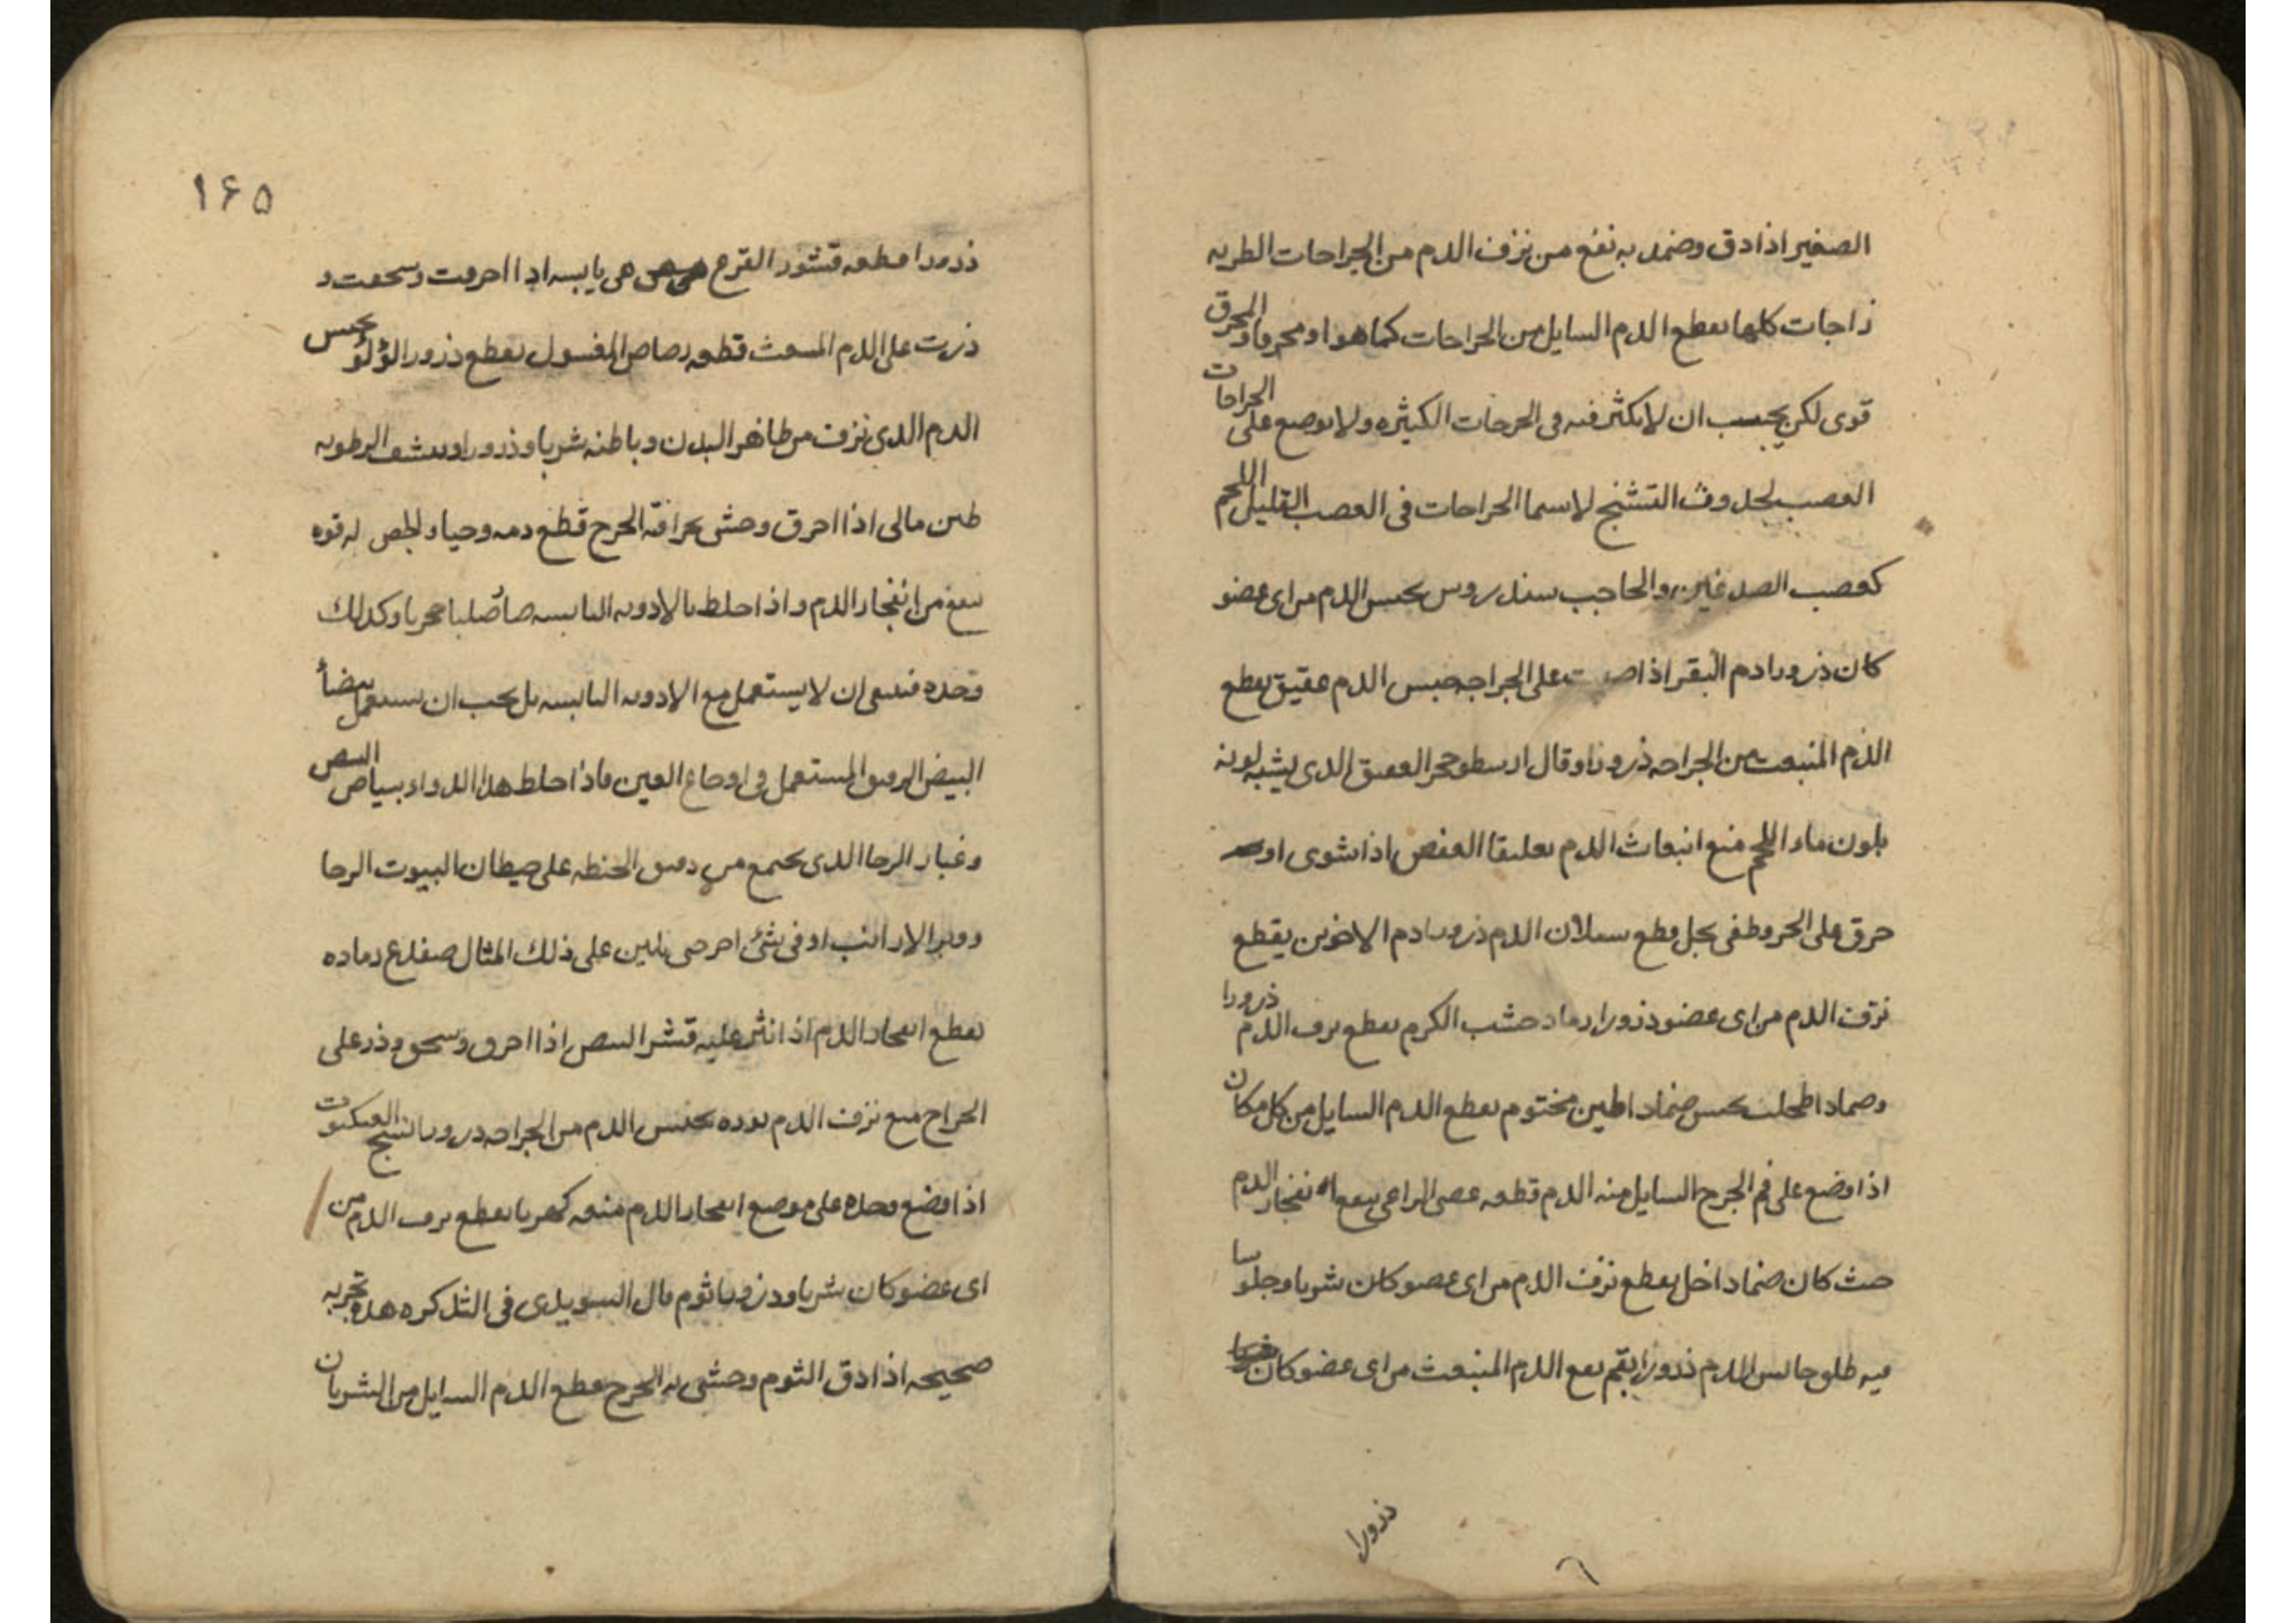 الصغير اذا دق وضمد به نفع من نزف الدم من الجراحات الطريه
زاجات كلها يقطع الدم السايل من الجراحات كما هو او محرقا والمحرق
قوى لكن يجب ان لا يكثر فيه فى الجرحات الكثيره ولا يوضع على الجراحات
العصب لحدوث التشنج لاسيما الجراحات فى العصب القليل اللحم
كعصب الصدغين والحاجب سندروس يحبس الدم من اى عضو
كان ذرورا دم البقر اذا على الجراحه حبس الدم عقيق يقطع
الدم المنبعث من الجراحه ذرورا وقال ارسطو حجر العقيق الذى يشبه لونه
بلون ماء اللحم منع انبعاث الدم تعليقا العفص اذا شوى او
حرق على الجر وطفى بخل قطع سيلان الدم ذرورا دم الاخوين يقطع
نزف الدم من اى عضو ذرورا رماد خشب الكرم يقطع نزف الدم ذرورا
وضمادا طحلب يحبس ضمادا طين مختوم يقطع الدم السايل من كل مكان
اذا وضع على فم الجرح السايل منه الدم قطعه عصى الراعى ينفع انفجار الدم
حيث كان ضمادا خل يقطع نزف الدم من اى عضو كان شربا وجلوسا
فيه طلق حابس للدم ذرورا بقم يقع الدم المنبعث من اى عضو كان
ذرورا
١۶۵
ذرورا قطعه قشور القرع هى يابسه اذا احرقت وسحقت و
ذرت على الدم المنبعث قطعه رصاص المغسول يقطع ذرورا لؤلؤ يحبس
الدم الذى نزف من ظاهر البدن وباطنه شربا وذرورا وينشف الرطوبه
طين مالى اذا احرق وحشى بحراقته الجرح قطع دمه وحيا والجص له قوه
ينفع من انفجار الدم واذا خلط بالادويه اليابسه صار صلبا حجريا وكذلك
وحده فينبغى ان لا يستعمل مع الادويه اليابسه بل يجب ان يستعمل ببياض
البيض الرقيق المستعمل فى اوجاع العين فاذا خلط هذا الدواء ببياض البيض
وغبار الرحا الذى يجتمع من دقيق الحنطه على حيطان البيوت الرحا
ووبر الارانب او فى شئ اخر حى يلين على ذلك المثال ضفدع رماده
يقطع انفجار الدم اذا نثر عليه قشر البيض اذا احرق وسحق وذر على
الجراح منع نزف الدم نوره يحبس الدم من الجراحه ذرورا نسج العنكبوت
اذا وضع وحده على موضع انفجار الدم منعه كهربا يقطع نزف الدم من
اى عضو كان شربا وذرورا ثوم قال السويدى فى التذكره هذه تجربه
صحيحه اذا دق الثوم وحشى به الجرح قطع الدم السايل من الشريان